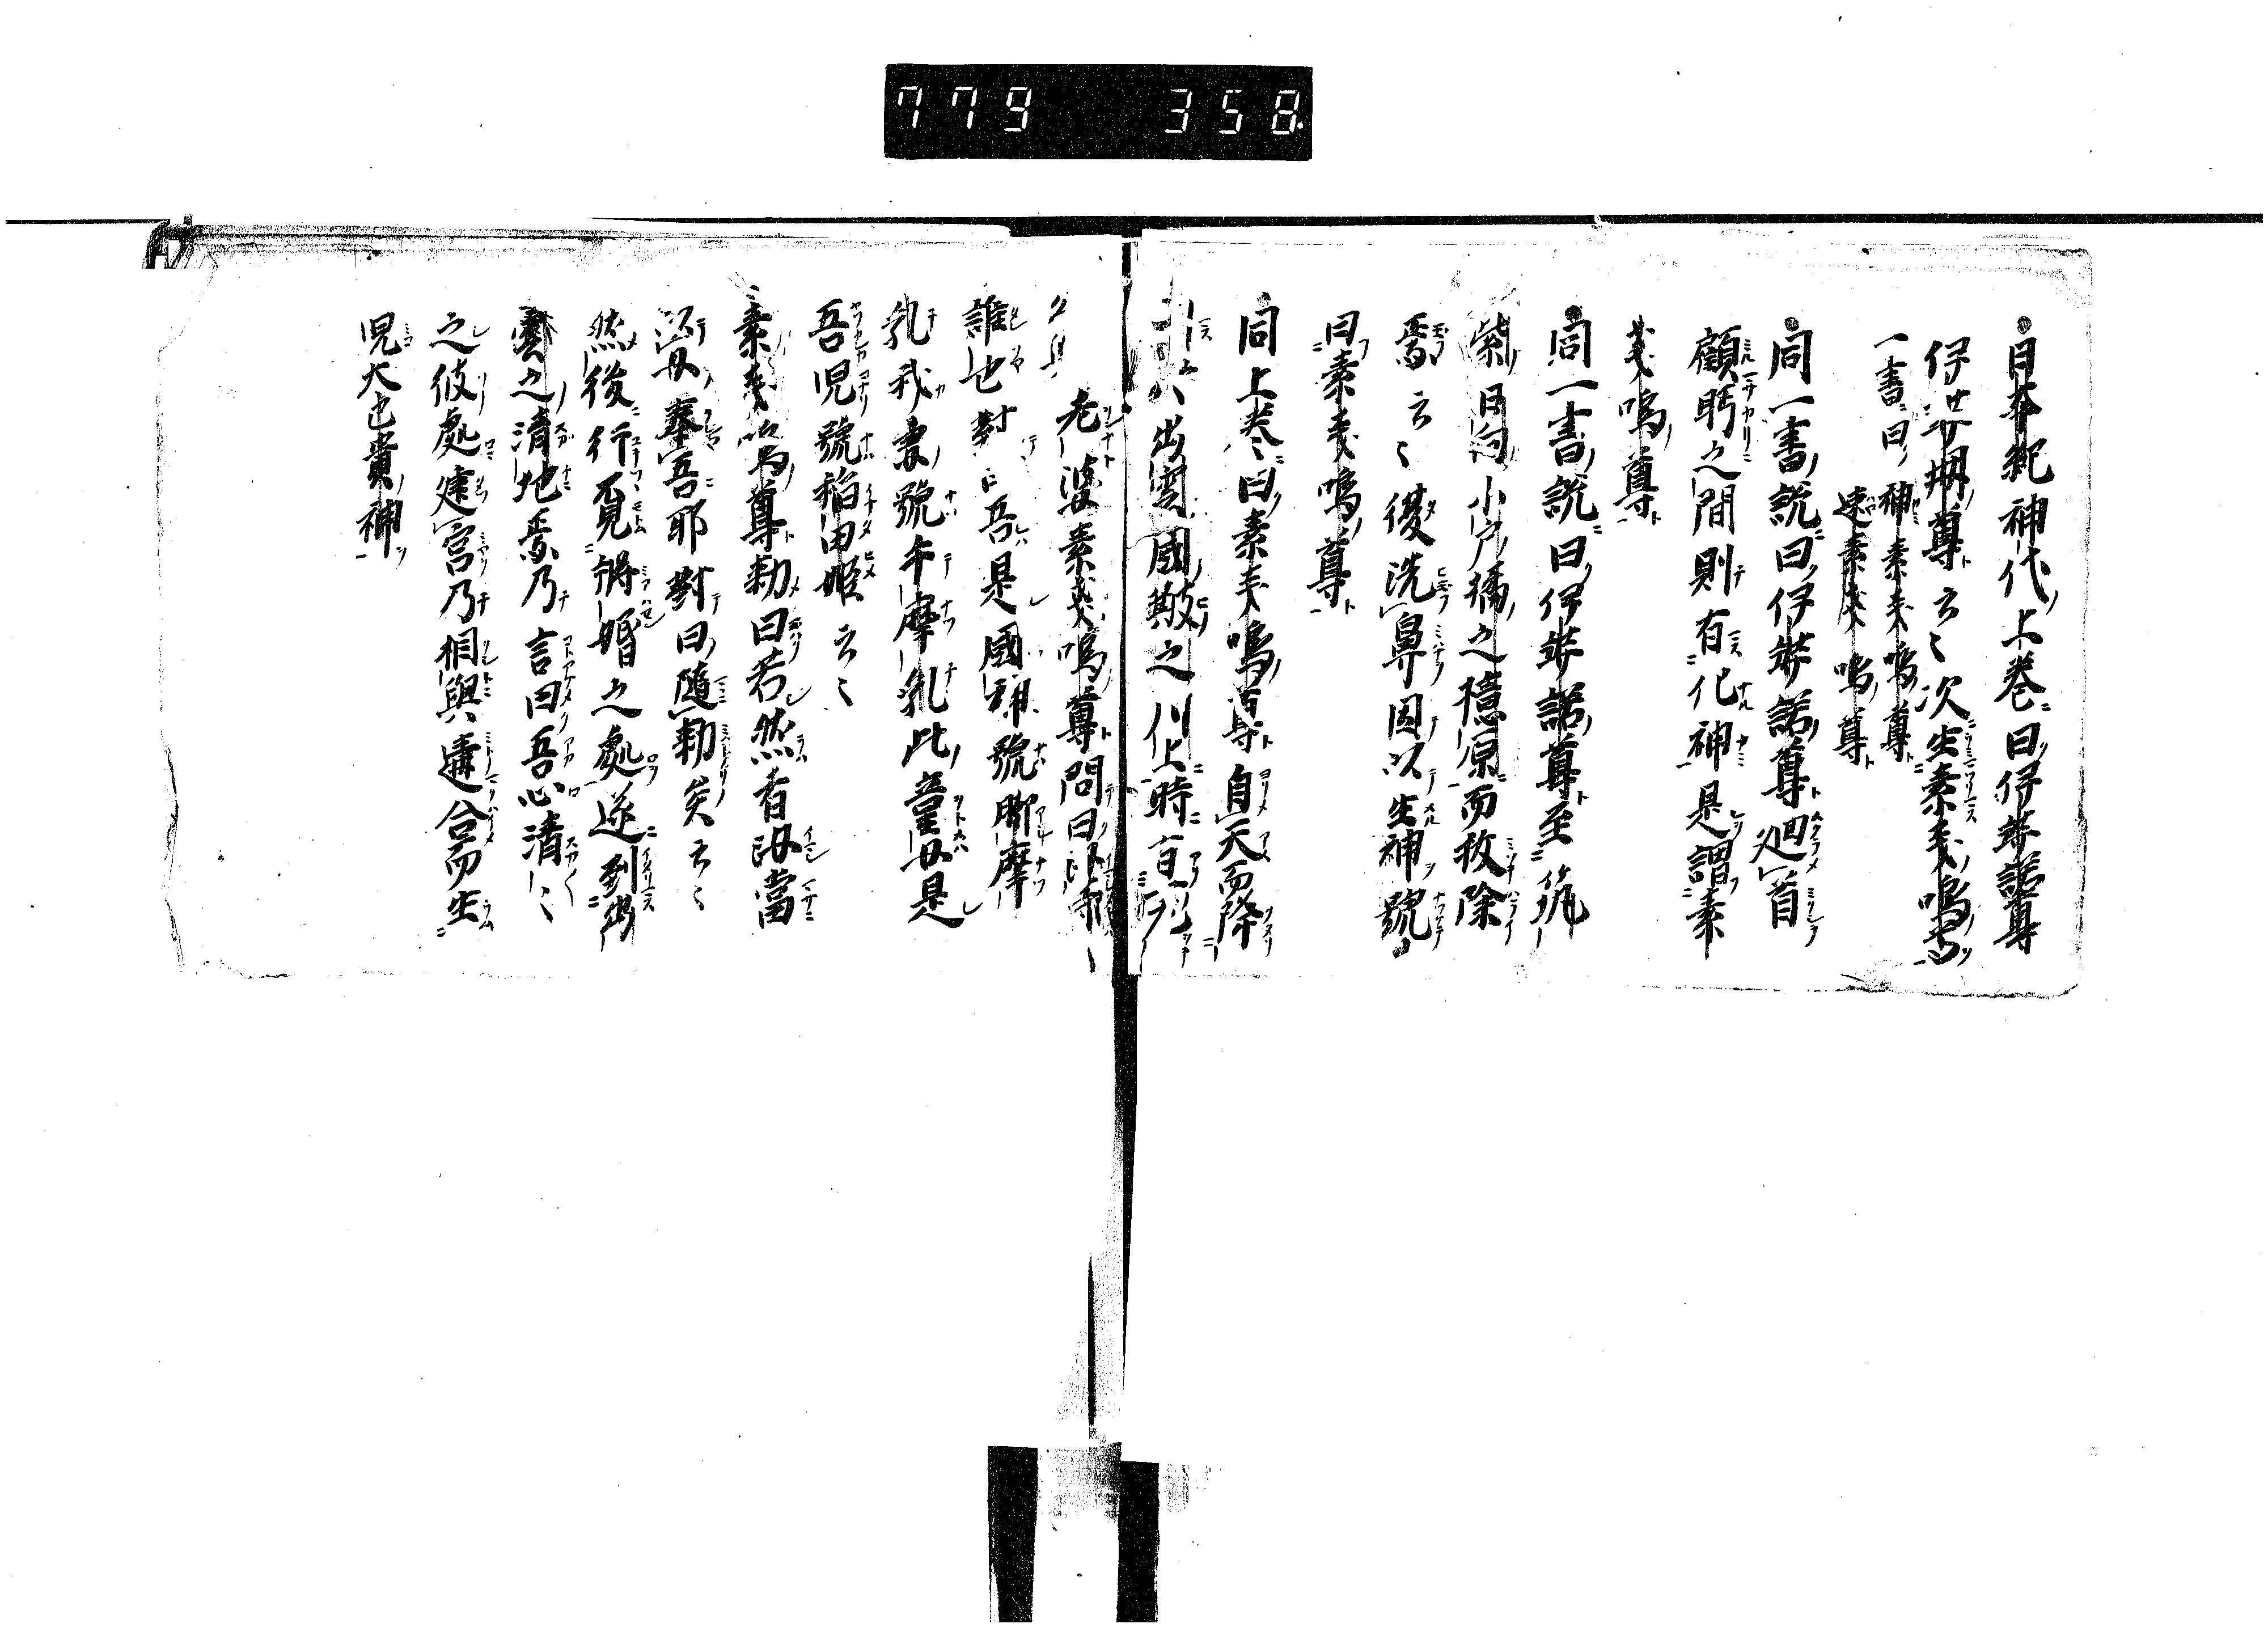 779 358
日本紀神代上巻曰伊弉諾尊
伊弉冊尊云々次生素戔嗚尊
一書曰神素戔嗚尊
速素戔嗚尊
同一書説曰伊弉諾尊廻首
顧眄之間則有化神是謂素
戔嗚尊
同一書説曰伊弉諾尊至筑
紫日向小戸橘之檍原而秡除
焉云々後洗鼻因以生神號
曰素戔嗚尊
同上巻曰素戔嗚尊自天而降
出雲國簸之川上時有
老婆素戔嗚尊問曰
誰也對曰吾是國神號脚摩
乳我妻號手摩乳此童女是
吾児號稲田姫云々
素戔嗚尊勅曰若然者汝當
女奉吾耶對曰隨勅矣云々
然後行覓將婚之處遂到出
雲之清地焉乃言曰吾心清々
之彼處建宮乃相與遘合而生
児大已貴神